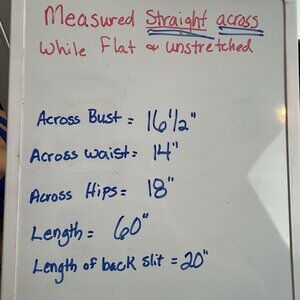 Measured Straight across
While Flat & unstretched
Across Bust = 16 1/2"
Across Waist = 14"
Across Hips = 18"
Length = 60"
Length of back slit = 20"